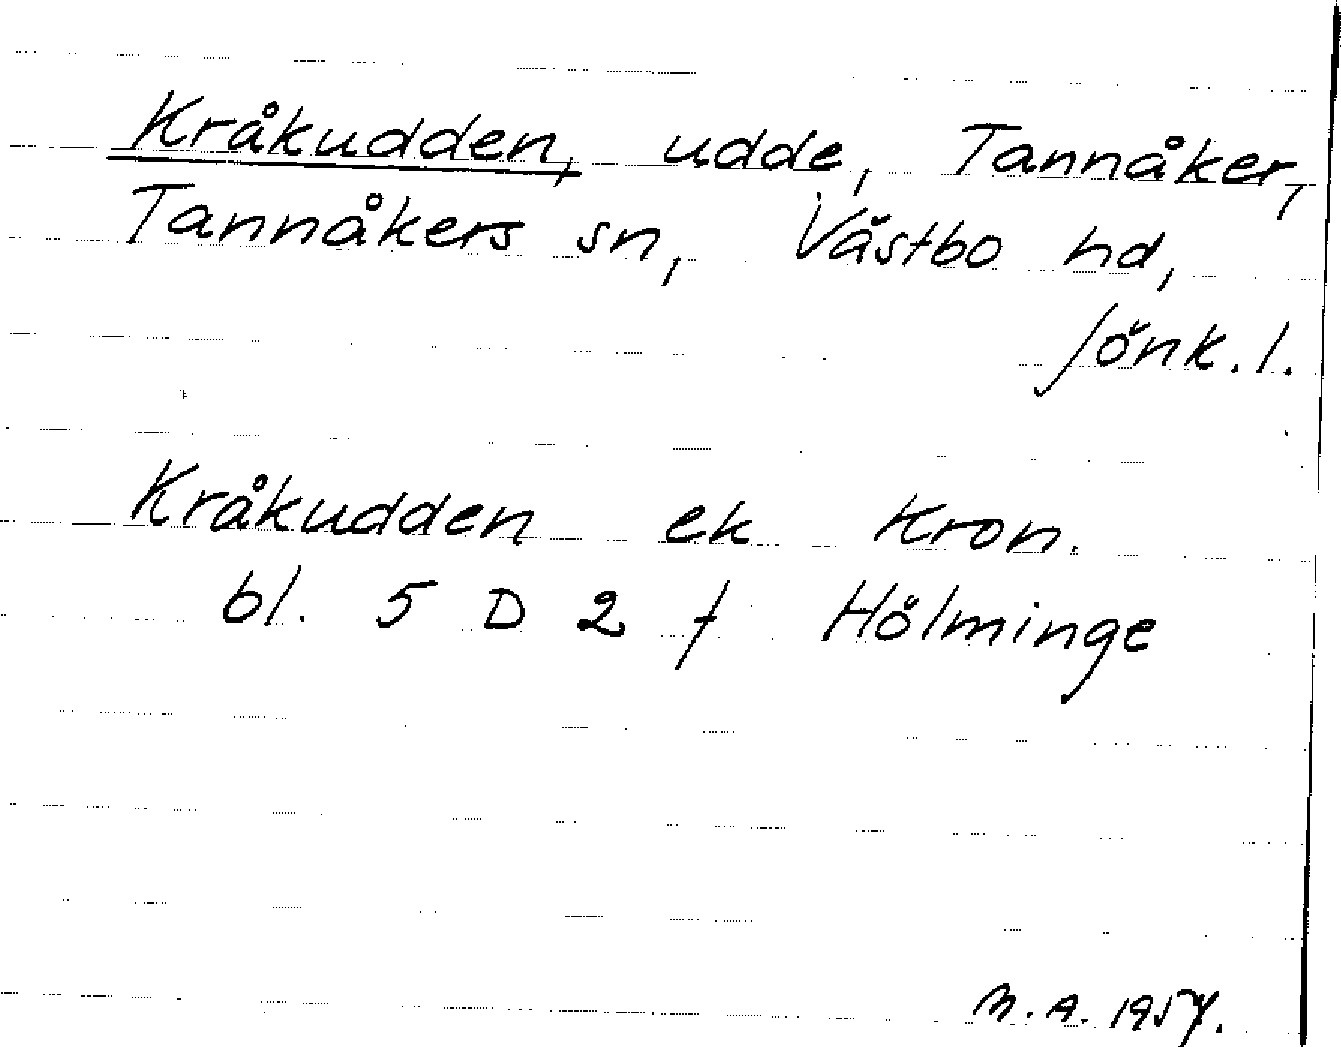 Kråkudden, udde, Tannåker,
Tannåkers sn, Västbo hd,
Jönk. l.
Kråkudden ek Kron.
bl. 5 D 2 f Hölminge
M.A. 1957.